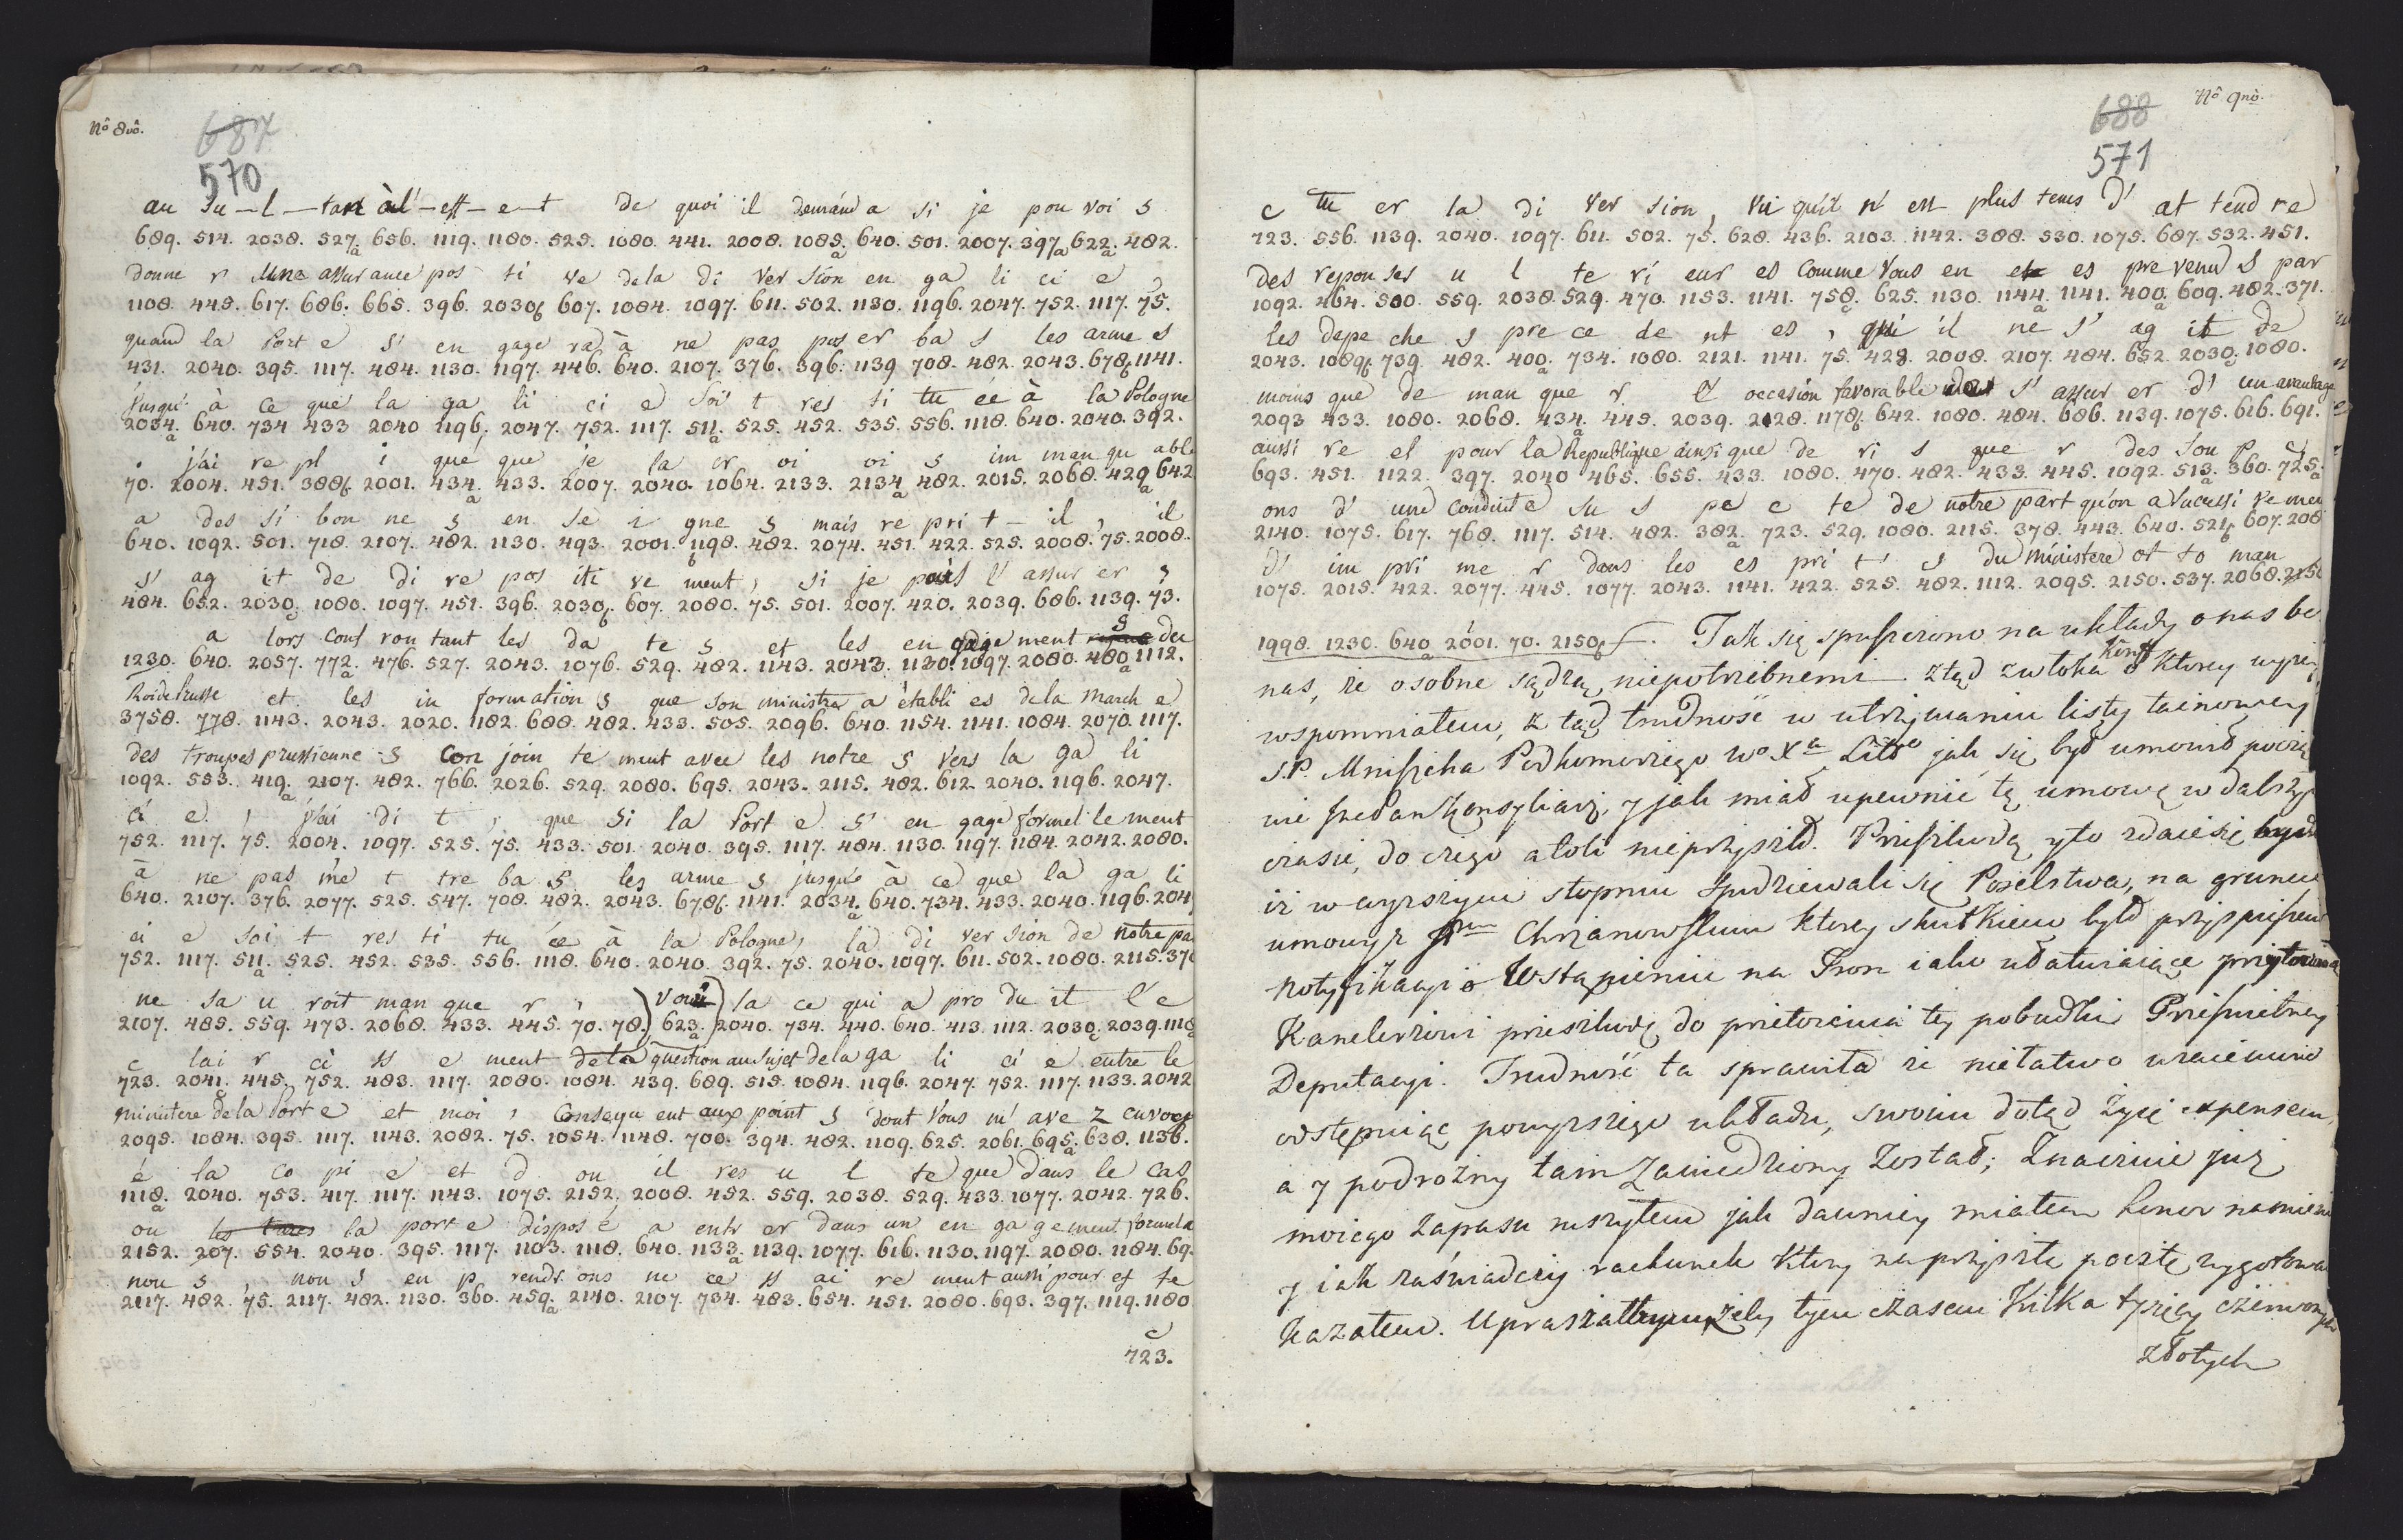 Nº 8vô.
687
570
au su-l-tan à l'-eff-e-t de quoi il demand a si je pou voi s
689. 514. 2038. 527a. 656. 1119. 1180. 525. 1080. 441. 2008. 1085a. 640. 501. 2007. 397a. 622a. 482.
donne r une assurance pos ti ve de la di ver sion en ga li ci e ,
1108. 445. 617. 686. 665. 396. 2030b. 607. 1084. 1097. 611. 502. 1130. 1196. 2047. 752. 1117. 75.
quand la Port e s' en gage ra à ne pas pos er ba s les arme s
431. 2040. 395. 1117. 484. 1130. 1197. 446. 640. 2107. 376. 396. 1139. 708. 482. 2043. 678b. 1141.
jusqu' à ce que la ga li ci e soi t res ti tu ée à la Pologne
2034a. 640. 734 433 2040 1196. 2047. 752. 1117. 511a. 525. 452. 535. 556. 1118. 640. 2040. 392.
. j'ai re pl i que que je la cr oi oi s im man qu able
70. 2004. 451. 388b. 2001. 434a. 433. 2007. 2040. 1064. 2133. 2134a. 482. 2015. 2068. 429a. 642
a des si bon ne s en se i gne s mais re pri t - il , il
640. 1092. 501. 718. 2107. 482. 1130. 493. 2001. 1198b. 482. 2074. 451. 422. 525. 2008. 75. 2008.
s' ag it de di re pos iti ve ment, si je puis l' assur er ;
484. 652. 2030c. 1080. 1097. 451. 396. 2030b. 607. 2080. 75. 501. 2007. 420. 2039. 686. 1139. 73.
a lors conf ron tant les da te s et les en gage ment s du
1230. 640. 2057. 772a. 476. 527. 2043. 1076. 529. 482. 1143. 2043. 1130. 1097. 2080. 480a. 1112.
Roi de Prusse et les in formation s que son ministre a établi es de la March e
3758. 778. 1143. 2043. 2020. 1182. 688. 482. 433. 505. 2096. 640. 1154. 1141. 1084. 2070. 1117.
des troupes prussienne - s con join te ment avec les notre s vers la ga li
1092. 553. 419a. 2107. 482. 766. 2026. 529. 2080. 695. 2043. 2115. 482. 612. 2040. 1196. 2047.
ci e , j'ai di t , que si la Port e s' en gage formel le ment
752. 1117. 75. 2004. 1097. 525. 75. 433. 501. 2040. 395. 1117. 484. 1130. 1197. 1184. 2042. 2080.
à ne pas me t tre ba s les arme s jusqu'e à ce que la ga li
640. 2107. 376. 2077. 525. 547. 708. 482. 2043. 678b. 1141. 2034a. 640. 734. 433. 2040. 1196. 204
ci e soi t res ti tu ée à la Pologne, la di ver sion de notre pa
752. 1117. 511a. 525. 452. 535. 556. 1118. 640. 2040. 392. 75. 2040. 1097. 611. 502. 1080. 2115. 37
ne sa u roit man que r , ) voui) la ce qui a pro du it l'e
2107. 485. 559. 473. 2068. 433. 445. 70. 78.) 623a. )2040. 734. 440. 640. 413. 1112. 2030c. 2039. 1118
c lai r ci ss e ment de la question au sujet de la ga li ci e entre le
723. 2041. 445. 752. 483. 1117. 2080. 1084. 439. 689. 515. 1084. 1196. 2047. 752. 1117. 1133. 2042
ministere de la Port e et moi , Consequ ent aux point s dont vous m' ave z envoy
2095. 1084. 395. 1117. 1143. 2082. 75. 1054. 1148. 700. 394. 482. 1109. 625. 2061. 695a. 638. 1136.
é la co pi e et d ou il res u l te que dans le cas
1118a. 2040. 753. 417. 1117. 1143. 1075. 2152. 2008. 452. 559. 2038. 529. 433. 1077. 2042. 726.
ou la port e dispos é a entr er dans un en ga gement formel a
2152. 207. 554. 2040. 395. 1117. 1103. 1118. 640. 1133a. 1139. 1077. 616. 1130. 1197. 2080. 1184. 69.
nou s , nou s en p rendr ons ne ce ss ai re ment aussi pour ef fe
2117. 482. 75. 2117. 482. 1130. 360. 459a. 2140. 2107. 734. 483. 654. 451. 2080. 693. 397. 1119. 1180
c
723.
Nº 9nô.
688
571
c tu er la di ver sion, vu qu'il n' est plus tems d' at tend re
723. 556. 1139. 2040. 1097. 611. 502. 75. 628. 436. 2103. 1142. 388. 530. 1075. 687. 532. 451.
des reponses u l te ri eur es comme vous en es pre venu s par
1092. 464. 500. 559. 2038. 529. 470. 1153. 1141. 758. 625. 1130. 1144a. 1141. 400a. 609. 482. 371.
les depe che s pre ce de nt es , qu 'il ne s' ag it de
2043. 1089b. 739. 482. 400a. 734. 1080. 2121. 1141. 75. 428. 2008. 2107. 484. 652. 2030c. 1080.
moins que de man que r l' occasion favorable s' assur er d' un avantage
2093 433. 1080. 2068. 434a. 445. 2039. 2128. 1178b. 642. 1080. 484. 686. 1139. 1075. 616. 691.
aussi re el pour la Republique ainsi que de ri s que r des sou p c
693. 451. 1122. 397. 2040 465. 655. 433. 1080. 470. 482. 433. 445. 1092. 513a. 360. 725a.
ons d' une conduit e su s pe c te de notre part qu'on a sucessi ve men
2140. 1075. 617. 768. 1117. 514. 482. 382a. 723. 529. 1080. 2115. 378. 443. 640. 521b. 607. 208
d' im pri me r dans les es pri t s du ministere ot to man
1075. 2015. 422. 2077. 445. 1077. 2043. 1141. 422. 525. 482. 1112. 2095. 2150. 537. 2068. 2150
1998. 1230. 640a. 2001. 70. 2150b. Tak się spuszczono na układy o nas be
nas, że osobne sądzą niepotrzebnemi z tąd zwłoka o ktorey wyżey
wspomniałem, z tąd trudność w utrzymaniu listy tainowey
J.P. Mniszcha Podkomorzego Wº Xª Littº jak się był umowił
nie y jak miał upewnić tę umowę w dalszy
czasie, do czego atoli nieprzyszło. Przeszkodą yto zdaie się
iż w wyższym stopniu spodziewali się Poselstwa, na grunc
umowy z Chrzanowskim ktorey skutkiem było
notyfikacyi o Wstąpieniu na Tron iako
Kanclerzowi przeszkodę do tey pobudki
Deputacyi. Trudność ta sprawiła że niełatwo
odstępuiąc powyższego układu, swoim dotąd żyię expensem,
a y podrożny tain Zawiedziony został; Znacznie już
moiego zapasu ruszyłem jak dawniey miałem honor
y iak zaświadczy rachunek ktory na przyszłą pocztę zygotowa
kazałem. Upraszałbym, żeby tym czasem Kilka tysięcy czerwony
złotych